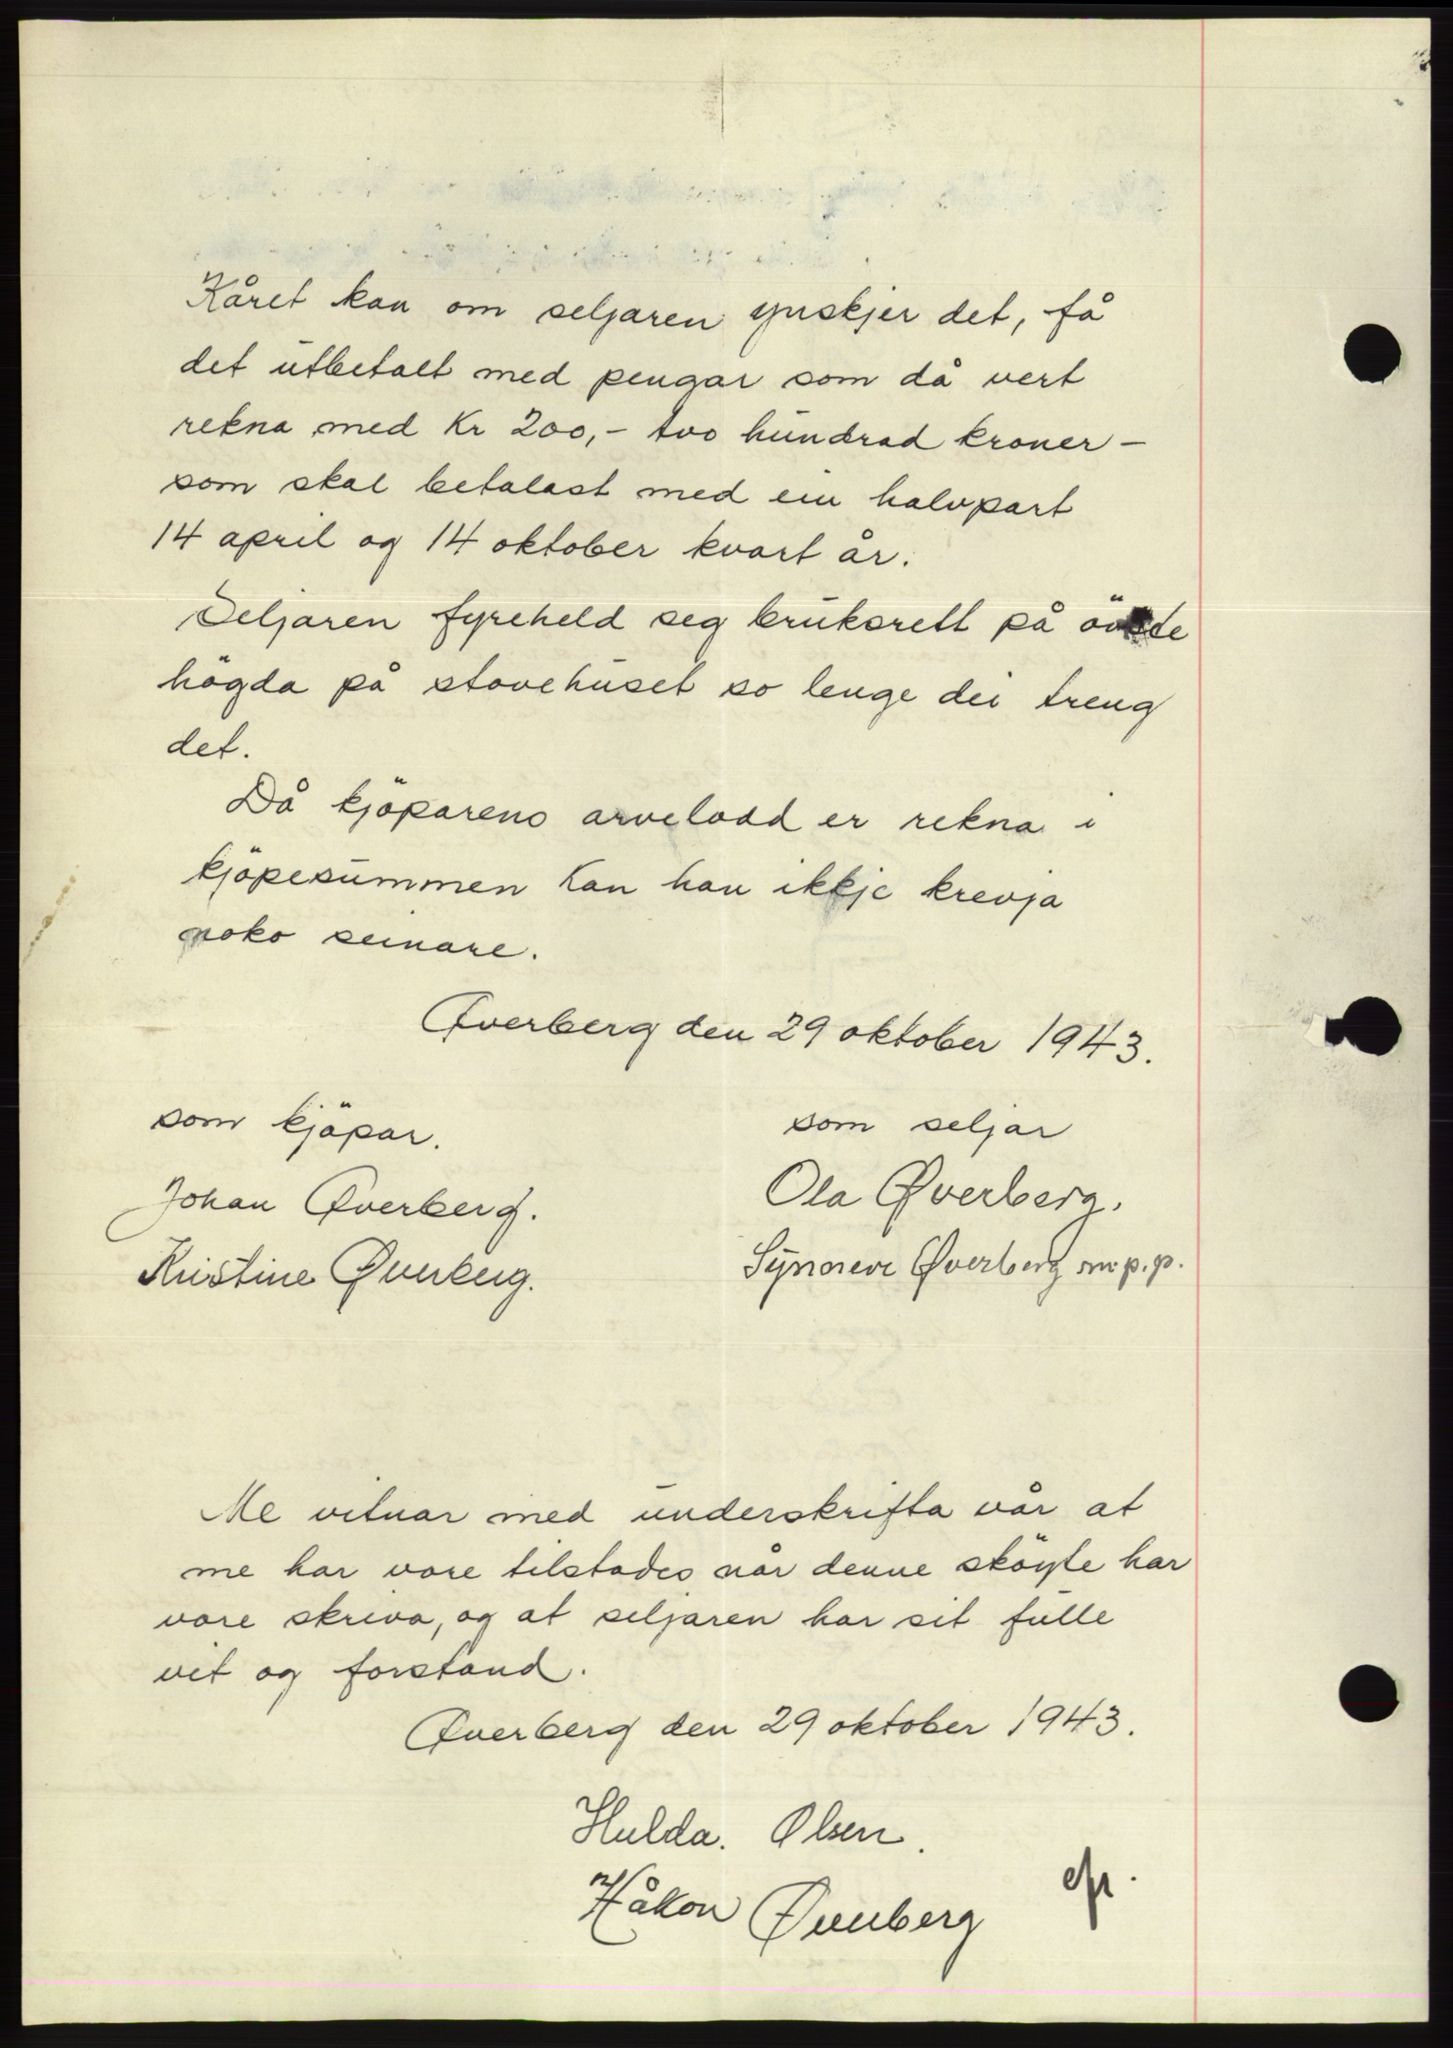 Kåret kan om seljaren ynskjer det, få
det utbetalt med pengar som då vert
rekna med Kr 200,- tvo hundrad kroner -
som skal betalast med ein halvpart
14 april og 14 oktober kvart år.
Seljaren fyreheld seg bruksrett på övste
högda på stovehuset so lenge dei treng
det.
Då kjöparens arvelodd er rekna i
kjöpesummen kan han ikkje krevja
noko seinare.
Øverberg den 29 oktober 1943.
som kjöpar. som seljar
Johan Øverberg. Ola Øverberg.
Kristine Øverberg. Synneve Øverberg m.p.p.
Me vitnar med underskrifta vår at
me har vore tilstades når denne sköyte har
vore skriva, og at seljaren har sit fulle
vit og forstand.
Øverberg den 29 oktober 1943.
Hulda. Olsen.
Håkon Øverberg